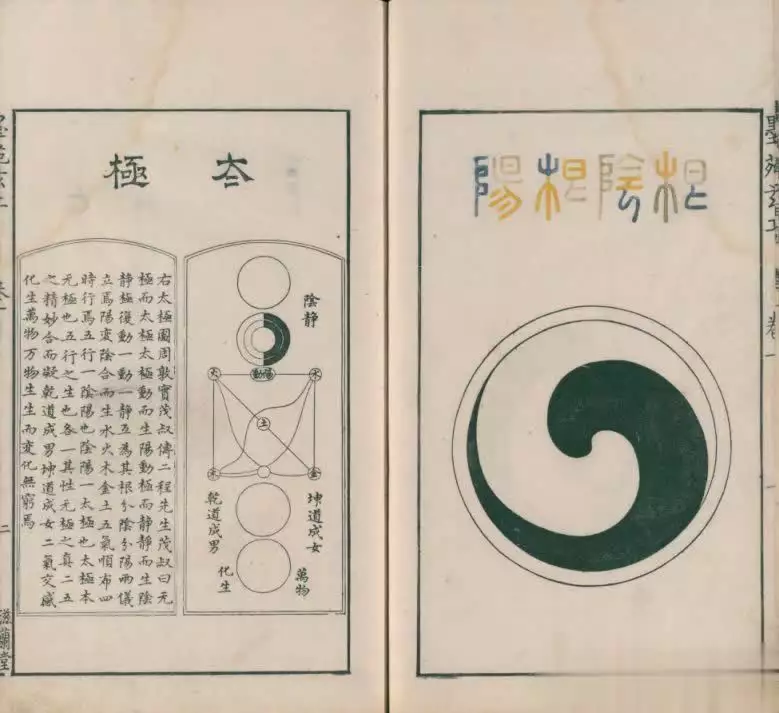 根陰根陽
太極
陰静
陽動
火
水
土
木
金
坤道成女
乾道成男
萬物
化生
右太極圖周敦實茂叔傳二程先生茂叔曰无
極而太極太極動而生陽動極而静静而生陰
静極復動一動一静互為其根分陰分陽兩儀
立焉陽变陰合而生水火木金土五氣順布四
時行焉五行一陰陽也陰陽一太極也太極本
无極也五行之生也各一其性无極之真二五
之精妙合而凝乾道成男坤道成女二氣交感
化生萬物万物生生而变化無窮焉
二
滋蘭堂